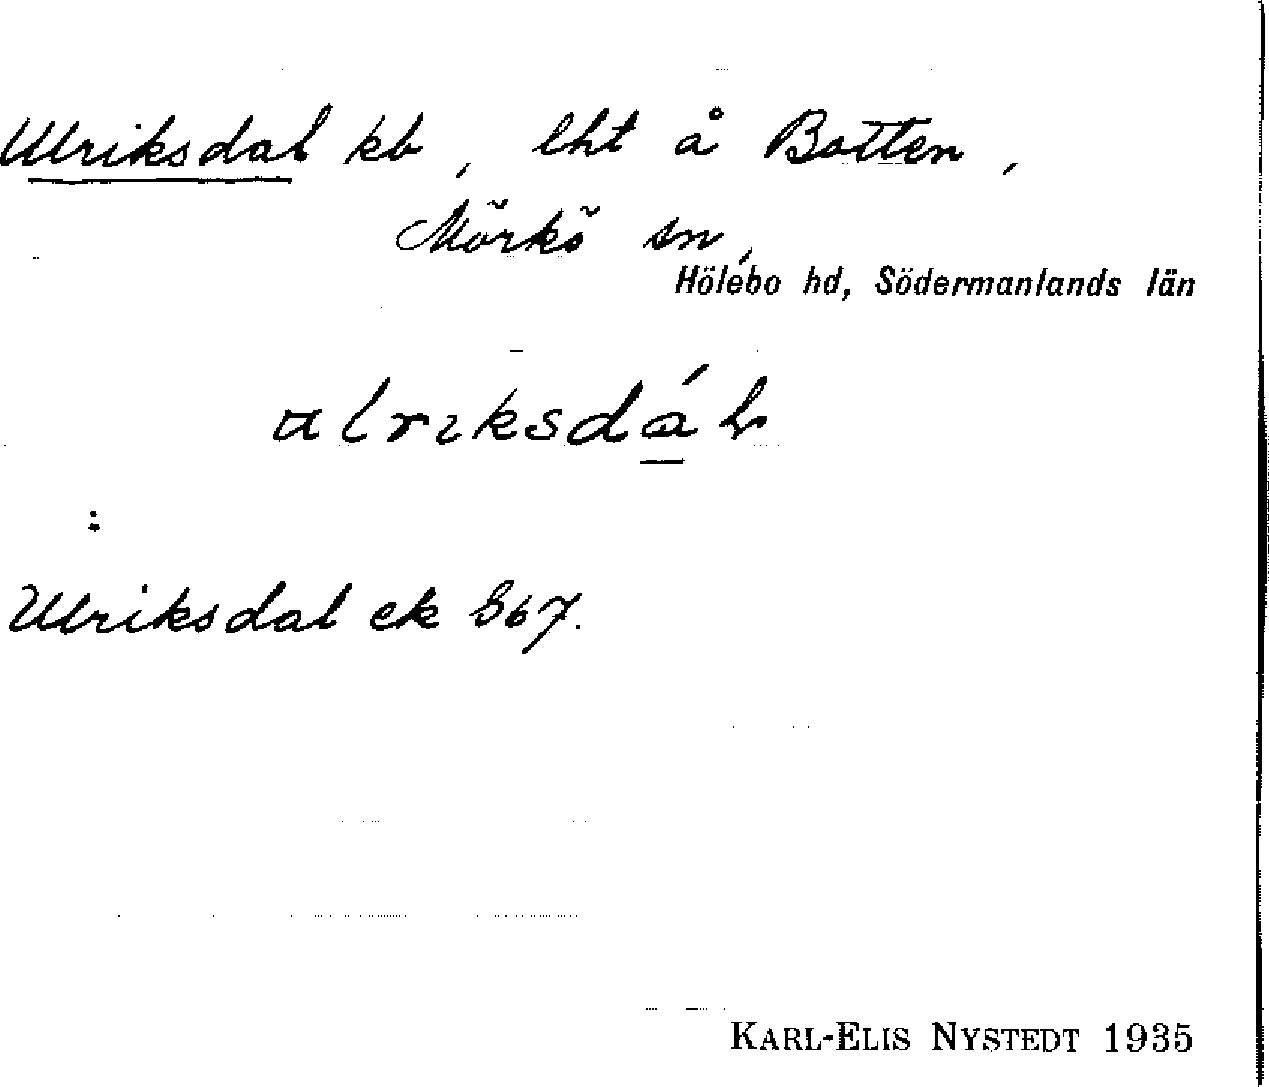 Ulriksdal kb, lht å Botten,
Mörkö sn,
Hölebo hd, Södermanlands län
ulriksdá̱l
:
Ulriksdal ek 867.
KARL-ELIS NYSTEDT 1935